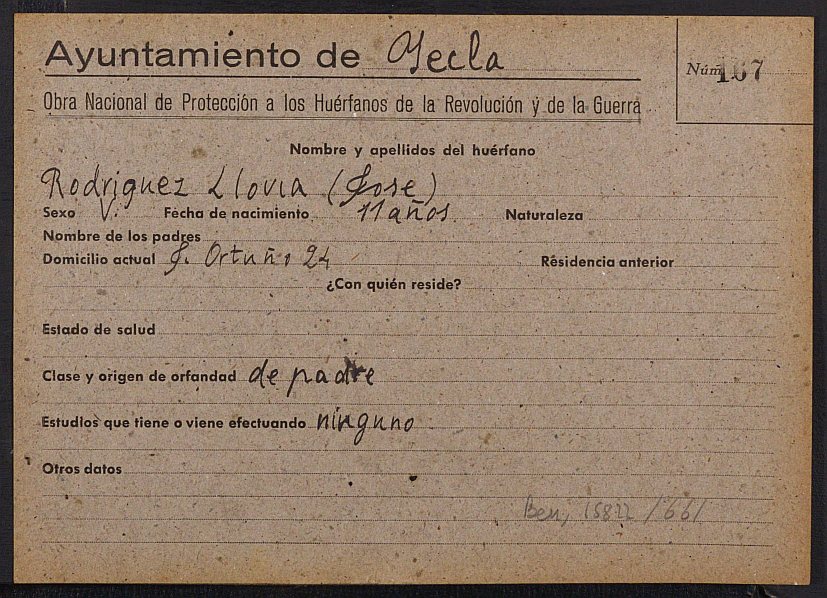 Ayuntamiento de Yecla
Núm. 167
Obra Nacional de Protección a los Huérfanos de la Revolución y de la Guerra
Nombre y apellidos del huérfano
Rodriguez Llovia (Jose)
Sexo V. Fecha de nacimiento 11 años Naturaleza
Nombre de los padres
Domicilio actual J. Ortuño 24 Residencia anterior
¿Con quién reside?
Estado de salud
Clase y origen de orfandad de padre
Estudios que tiene o viene efectuando ninguno
Otros datos
Ben, 15822/661